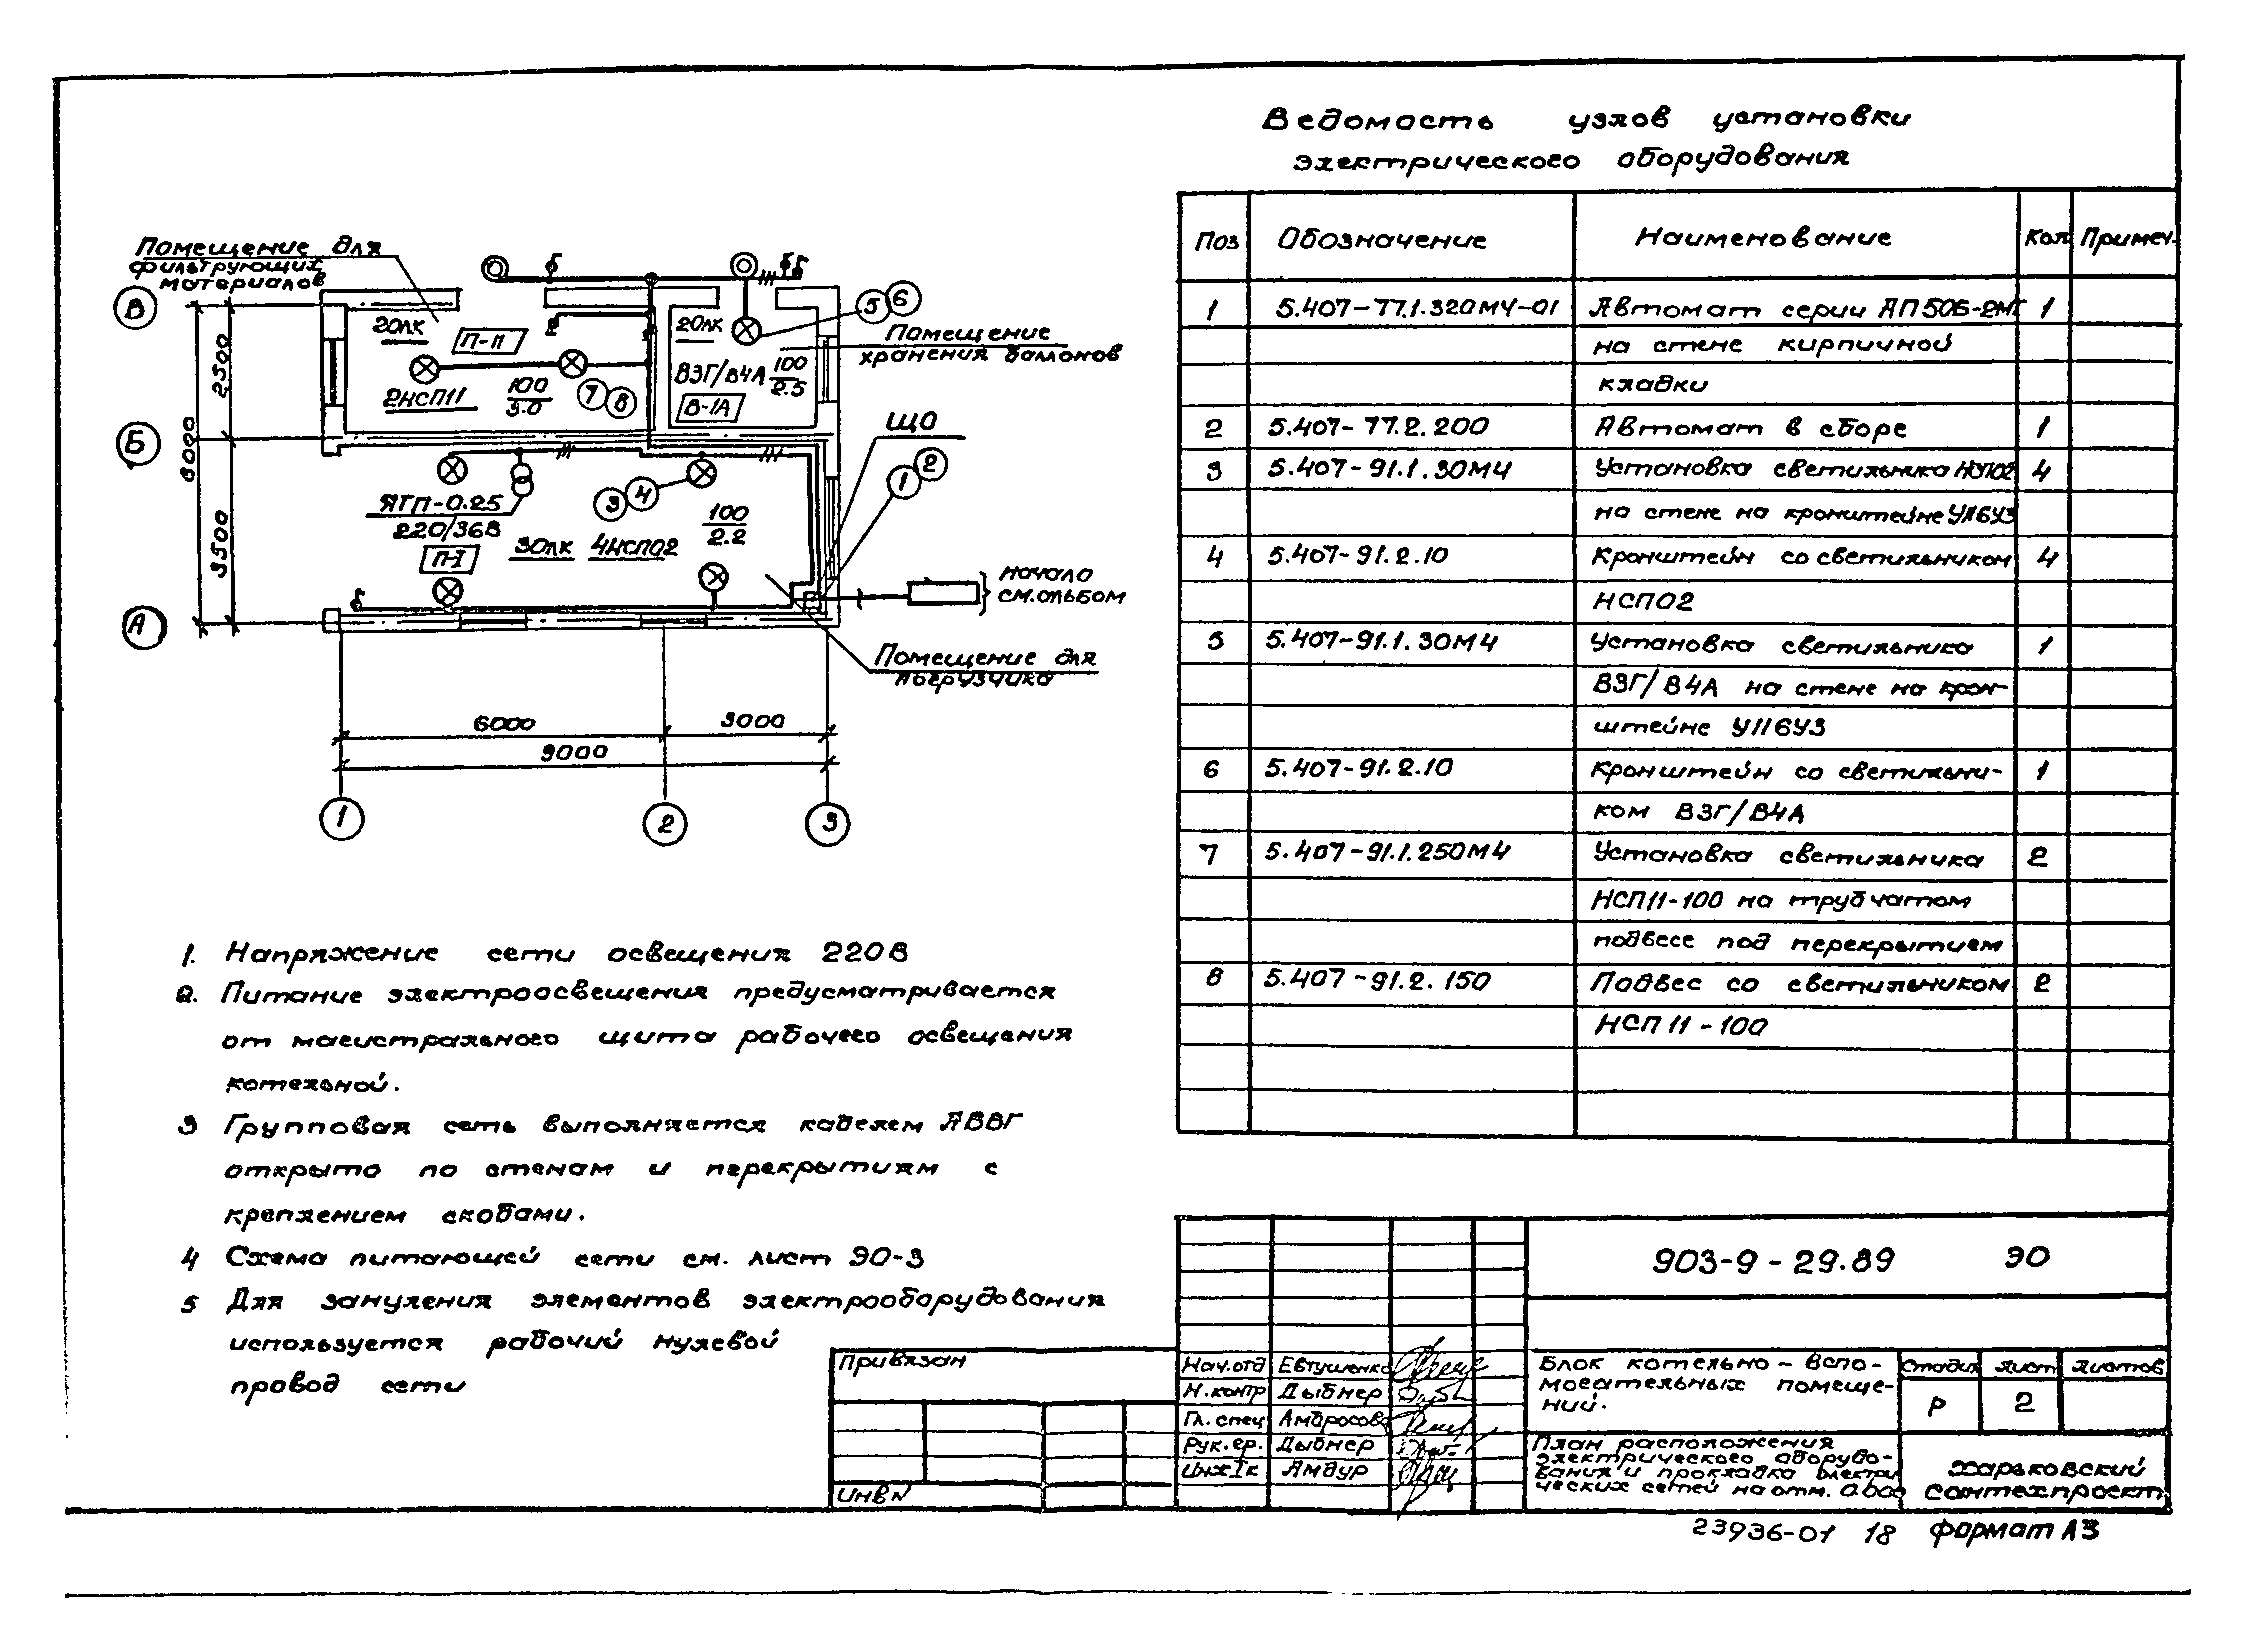 Ведомость узлов установки
электрического оборудования
Поз Обозначение Наименование Кол Примеч.
1 5.407-77.1.320МЧ-01 Автомат серии АП50Б-2МТ 1
на стене кирпичной
кладки
2 5.407-77.2.200 Автомат в сборе 1
3 5.407-91.1.30МЧ Установка светильника НСП02 4
на стене на кронштейне У116У3
4 5.407-91.2.10 Кронштейн со светильником 4
НСП02
5 5.407-91.1.30МЧ Установка светильника 1
ВЗГ/В4А на стене на крон-
штейне У116У3
6 5.407-91.2.10 Кронштейн со светильни- 1
ком ВЗГ/В4А
7 5.407-91.1.250МЧ Установка светильника 2
НСП11-100 на трубчатом
подвесе под перекрытием
8 5.407-91.2.150 Подвес со светильником 2
НСП11-100
Помещение для
фильтрующих
материалов
В
Б
А
6000
2500
3500
20лк
П-II
2НСП11
100
3.0
7
8
20лк
5
6
Помещение
хранения баллонов
ВЗГ/В4А
100
2.5
В-1А
ЩО
1
2
3
4
ЯТП-0.25
220/36В
П-I
30лк
4НСП02
100
2.2
начало
см.альбом
Помещение для
погрузчика
6000
3000
9000
1
2
3
1. Напряжение сети освещения 220В
2. Питание электроосвещения предусматривается
от магистрального щита рабочего освещения
котельной.
3 Групповая сеть выполняется кабелем АВВГ
открыто по стенам и перекрытиям с
креплением скобами.
4 Схема питающей сети см. лист ЭО-3
5 Для зануления элементов электрооборудования
используется рабочий нулевой
провод сети
Привязан
Инв N
903-9-29.89 ЭО
Нач.отд Евтушенко
Н.контр Дыбнер
Гл. спец Амбросова
Рук.гр. Дыбнер
Инж Iк Амдур
Блок котельно-вспо-
могательных помеще-
ний.
Стадия Лист Листов
Р 2
План расположения
электрического оборудо-
вания и прокладка электри
ческих сетей на отм. 0.000
Харьковский
Сантехпроект
23936-01 18 Формат А3